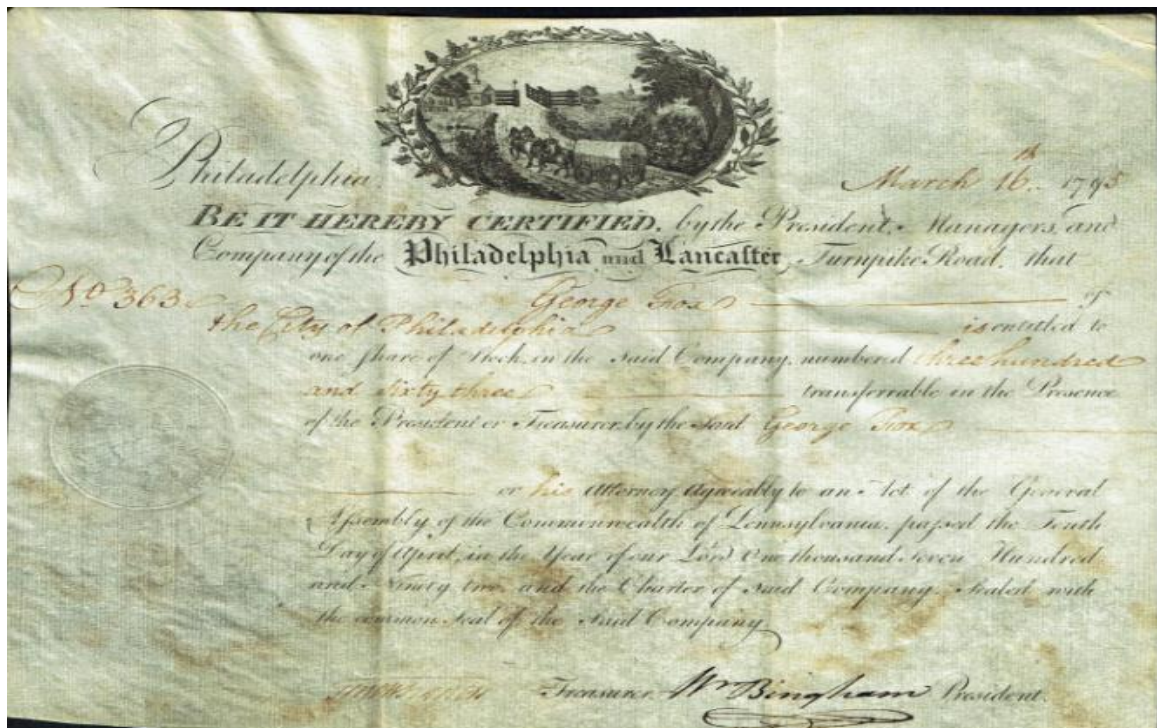 Philadelphia March 16th 1795
BE IT HEREBY CERTIFIED, by the President, Managers, and
Company of the Philadelphia and Lancaster Turnpike Road, that
No 363 George Fox of
the City of Philadelphia is entitled to
one share of Stock, in the said Company, numbered three hundred
and sixty three transferrable in the Presence
of the President or Treasurer, by the said George Fox
or his Attorney Agreeably to an Act of the General
Assembly of the Commonwealth of Pennsylvania, passed the Tenth
Day of April, in the Year of our Lord One thousand Seven Hundred
and Ninety two, and the Charter of said Company, Sealed with
the common Seal of the Said Company
Treasurer. Wm Bingham President.